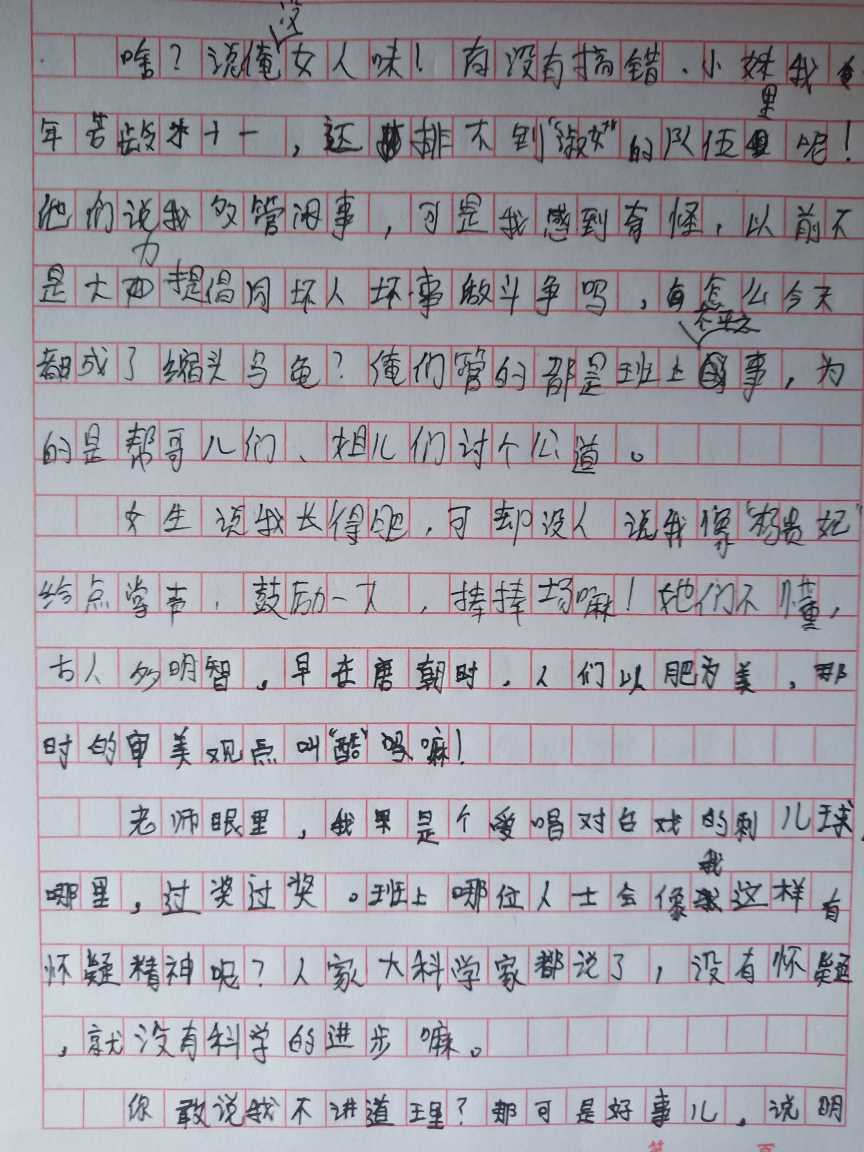 啥？说俺没女人味！有没有搞错．小妹我
年芳龄才十一，还排不到“淑女”的队伍里呢！
他们说我多管闲事，可是我感到有怪，以前不
是大力提倡同坏人坏事做斗争吗，怎么今天
都成了缩头乌龟？俺们管的都是班上不平之事，为
的是帮哥儿们、姐儿们讨个公道。
女生说我长得肥，可却没人说我像“杨贵妃”
给点掌声，鼓励一下，捧捧场嘛！她们不懂，
古人多明智，早在唐朝时，人们以肥为美，那
时的审美观点叫“酷”吗嘛！
老师眼里，我是个爱唱对台戏的刺儿球，
哪里，过奖过奖。班上哪位人士会像我这样有
怀疑精神呢？人家大科学家都说了，没有怀疑
，就没有科学的进步嘛。
你敢说我不讲道理？那可是好事儿，说明
第 页